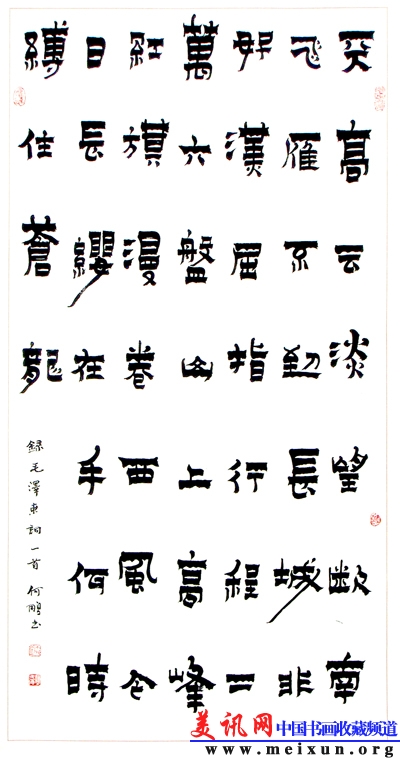 天高云淡望断南
飞雁不到長城非
好漢屈指行程二
萬六盤山上高峰
紅旗漫卷西風今
日長纓在手何時
縛住蒼龍
録毛澤東詞一首 何鵬书
美讯网 中国书画收藏频道
www.meixun.org